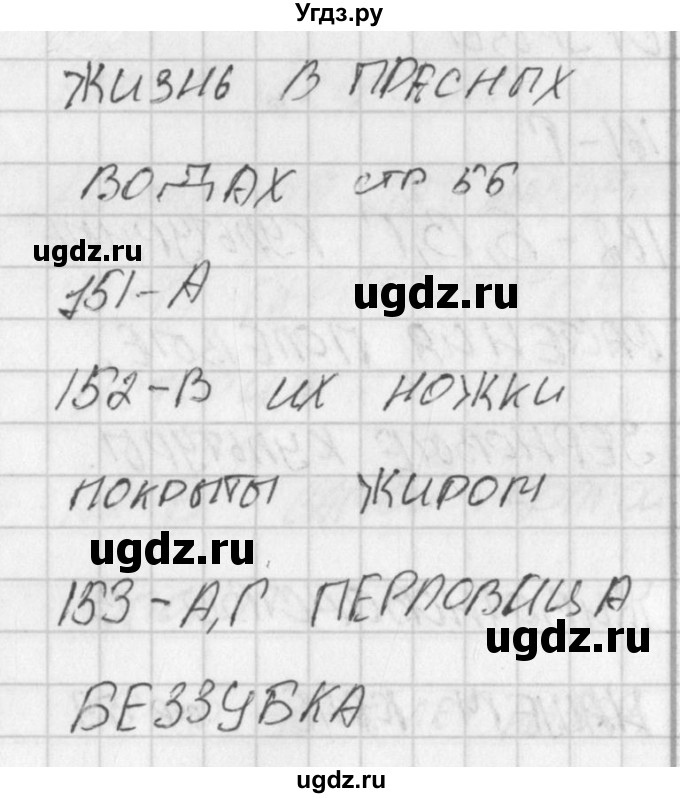 Угдз.ру
ЖИЗНЬ В ПРЕСНЫХ
ВОДАХ стр 56
ugdz.ru
151-А
ugdz.ru
152-В ИХ НОЖКИ
ПОКРЫТЫ ЖИРОМ
ugdz.ru
153-А,Г ПЕРЛОВИЦА
ugdz.ru
БЕЗЗУБКА
ugdz.ru